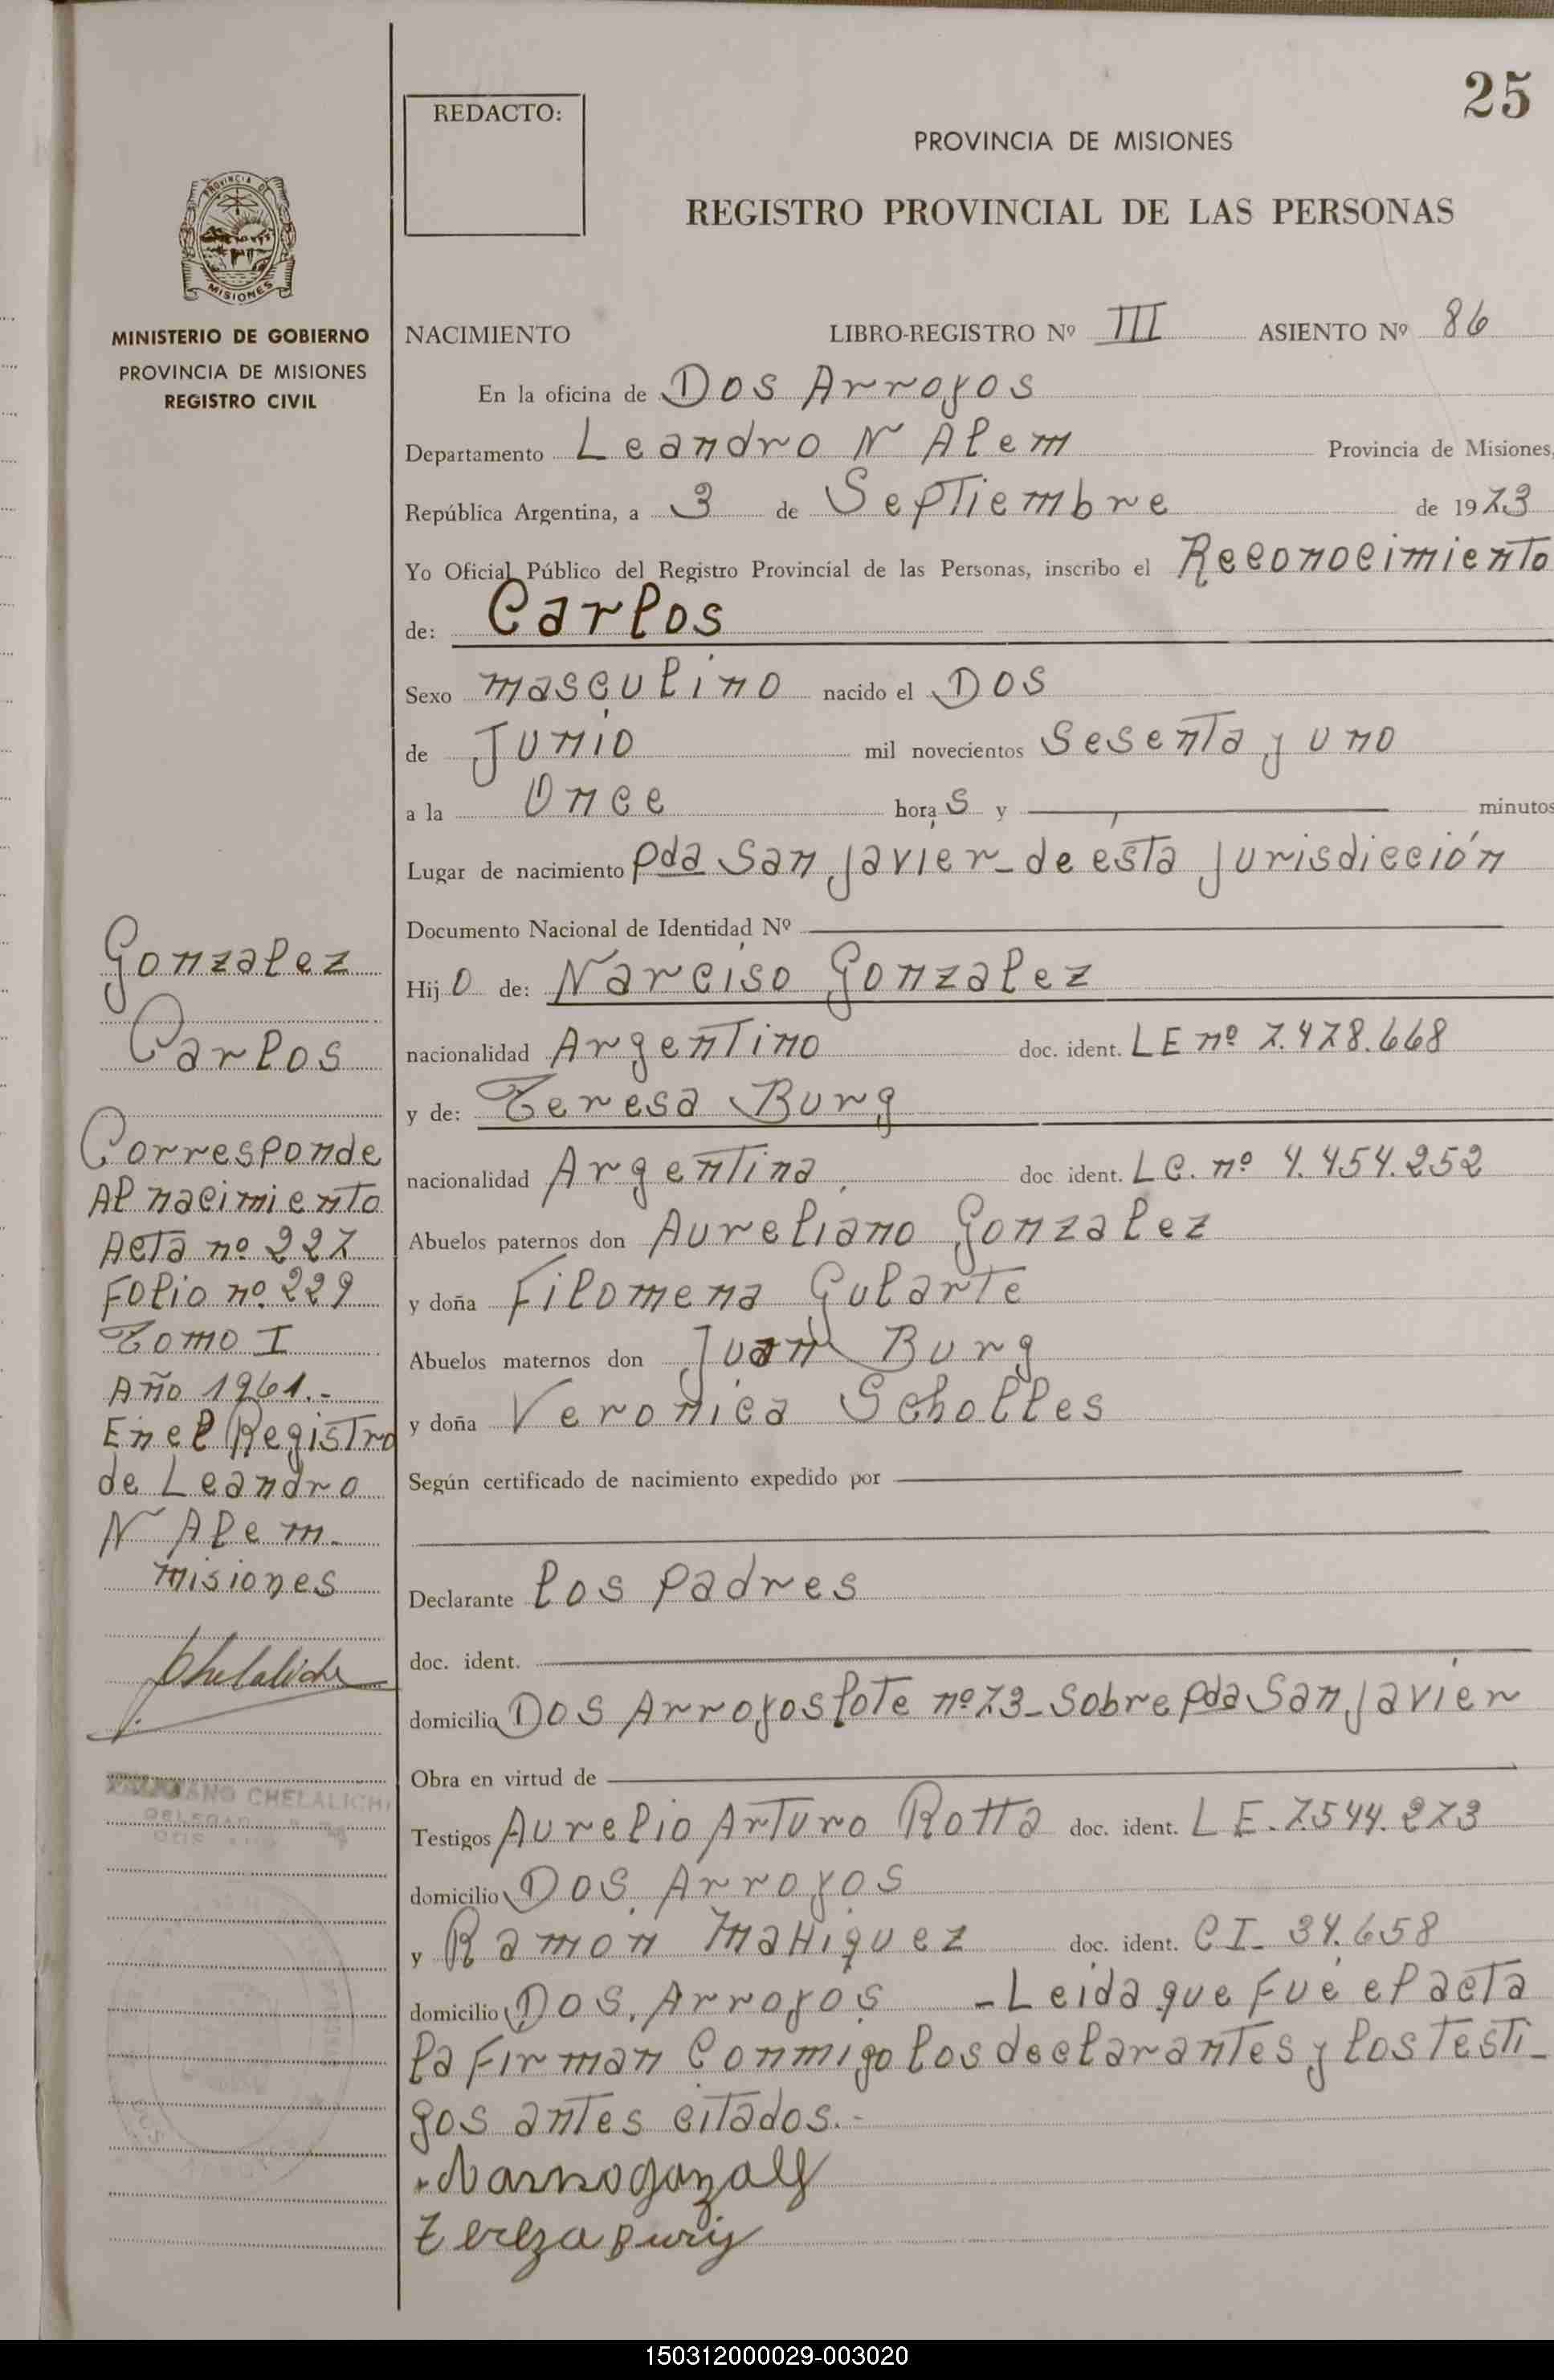 25
REDACTO:
PROVINCIA DE MISIONES
REGISTRO PROVINCIAL DE LAS PERSONAS
PROVINCIA DE
MISIONES
MINISTERIO DE GOBIERNO
PROVINCIA DE MISIONES
REGISTRO CIVIL
NACIMIENTO LIBRO-REGISTRO Nº III ASIENTO Nº 86
En la oficina de Dos Arroyos
Departamento Leandro N Alem Provincia de Misiones,
República Argentina, a 3 de Septiembre de 1973
Yo Oficial Público del Registro Provincial de las Personas, inscribo el Reconocimiento
de: Carlos
Sexo masculino nacido el Dos
de Junio mil novecientos Sesenta y uno
a la Once horas y minutos
Lugar de nacimiento pda San Javier - de ésta Jurisdicción
Documento Nacional de Identidad Nº
Hijo de: Narciso Gonzalez
nacionalidad Argentino doc. ident. LE nº 7.478.668
y de: Teresa Burg
nacionalidad Argentina. doc ident. LC. nº 4.454.252
Abuelos paternos don Aureliano Gonzalez
y doña Filomena Gularte
Abuelos maternos don Juan Burg
y doña Veronica Scholles
Según certificado de nacimiento expedido por
Declarante los padres
doc. ident.
domicilio Dos Arroyos lote nº 73 - Sobre pda San Javier
Obra en virtud de
Testigos Aurelio Arturo Rotta doc. ident. LE. 7544.273
domicilio Dos Arroyos
y Ramón doc. ident. CI - 34.658
domicilio Dos Arroyos - Leida que Fué el acta
la Firman Conmigo los declarantes y los Testi-
gos antes citados.-
tereza Burg
Gonzalez
Carlos
Corresponde
Al nacimiento
Acta nº 227
Folio nº 229
Tomo I
Año 1961.-
En el Registro
de Leandro
N Alem.
misiones
Chelalichi
CHELALICHI
150312000029-003020